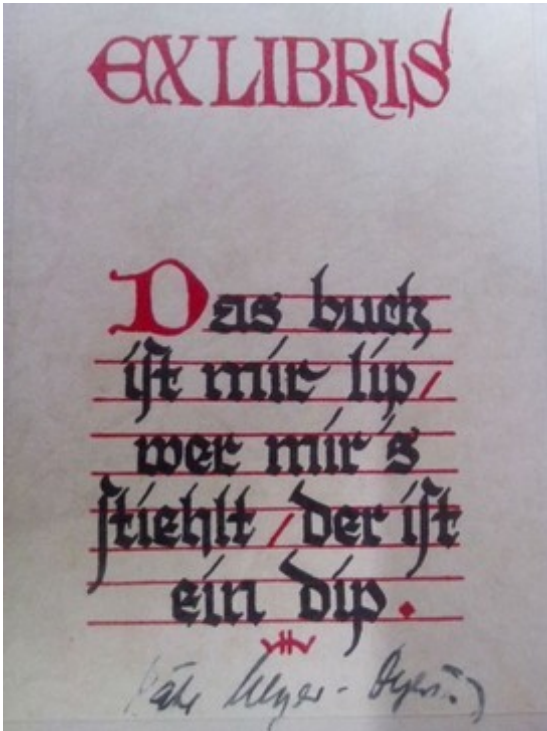 EX LIBRIS
Das buch
ist mir lip/
wer mir's
stiehlt / der ist
ein dip.
Meyer-